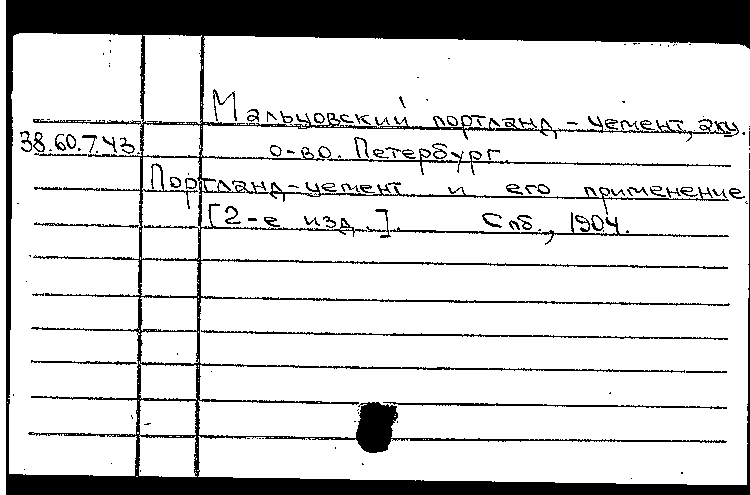 Мальцовский портланд-цемент, акц.
38.60.7.43. о-во. Петербург.
Портланд-цемент и его применение
[2-е изд.]. Спб., 1904.